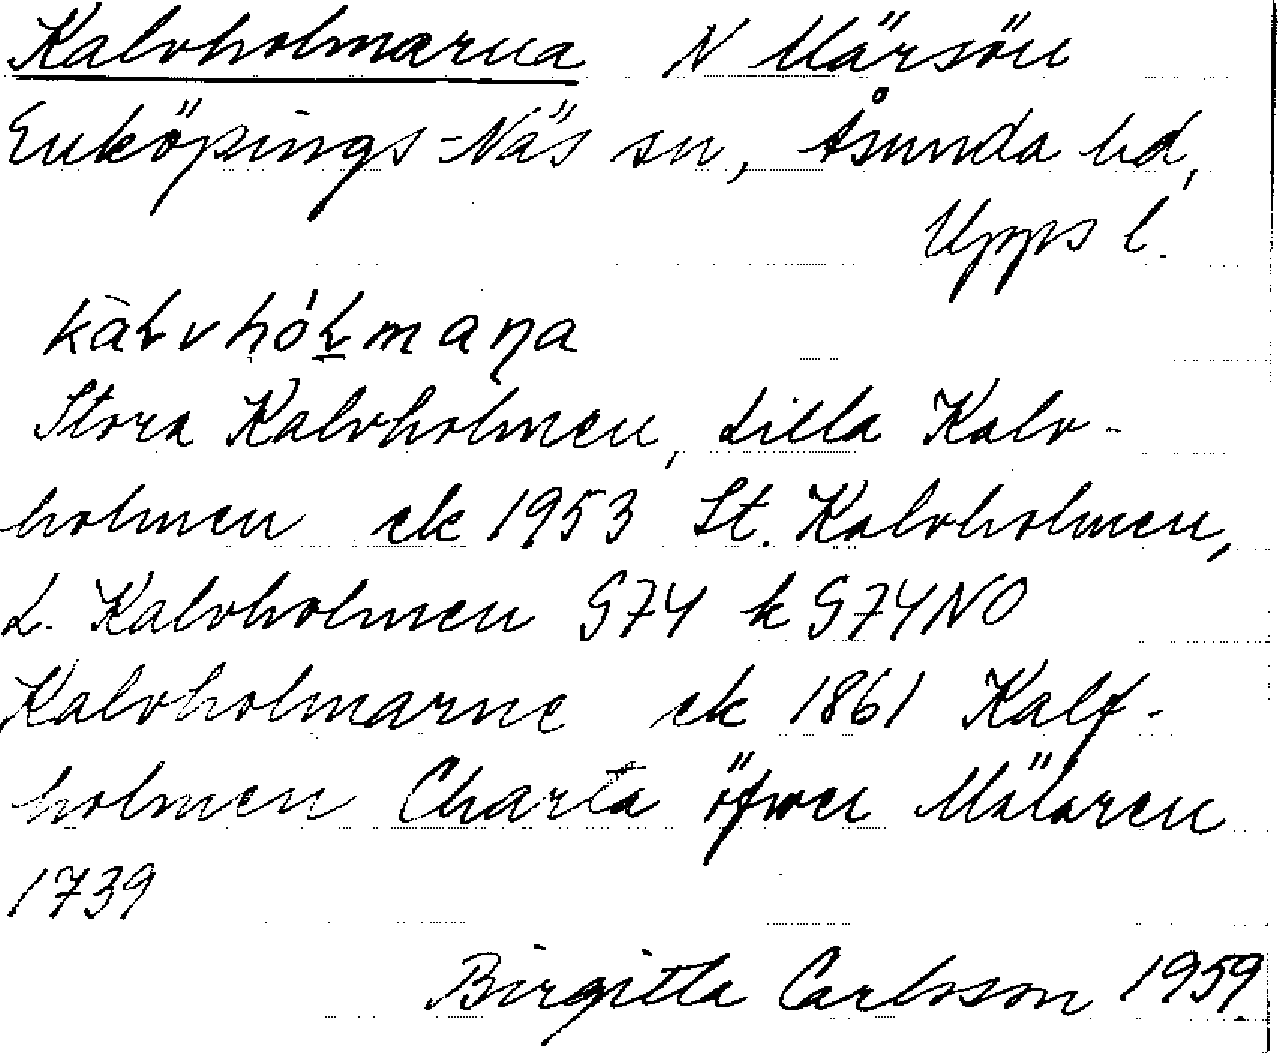 Kalvholmarna N Märsön
Enköpings-Näs sn, Åsunda hd,
Upps l.
Stora Kalvholmen, Lilla Kalv-
holmen ek 1953 St. Kalvholmen,
L. Kalvholmen G74 k G74NO
Kalvholmarne ek 1861 Kalf-
holmen Charta öfwer Mälaren
1739
Birgitta Carlsson 1959.